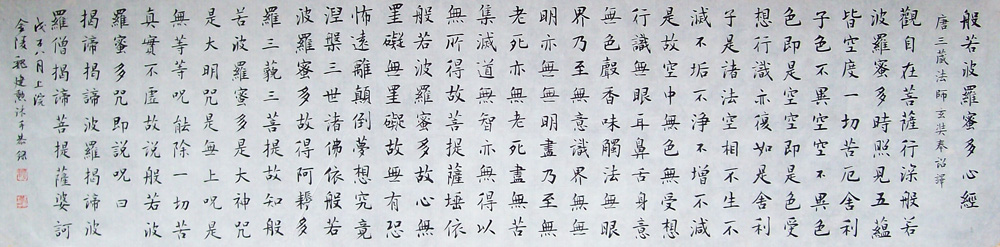 般若波羅蜜多心經
唐三藏法師玄奘奉詔譯
觀自在菩薩行深般若
波羅蜜多時照見五蘊
皆空度一切苦厄舍利
子色不異空空不異色
色即是空空即是色受
想行識亦復如是舍利
子是諸法空相不生不
滅不垢不淨不增不減
是故空中無色無受想
行識無眼耳鼻舌身意
無色聲香味觸法無眼
界乃至無意識界無無
明亦無無明盡乃至無
老死亦無老死盡無苦
集滅道無智亦無得以
無所得故菩提薩埵依
般若波羅蜜多故心無
罣礙無罣礙故無有恐
怖遠離顛倒夢想究竟
涅槃三世諸佛依般若
波羅蜜多故得阿耨多
羅三藐三菩提故知般
若波羅蜜多是大神咒
是大明咒是無上咒是
無等等咒能除一切苦
真實不虛故說般若波
羅蜜多咒即說咒曰
揭諦揭諦波羅揭諦波
羅僧揭諦菩提薩婆訶
月上浣
金陵建勳沐手恭錄